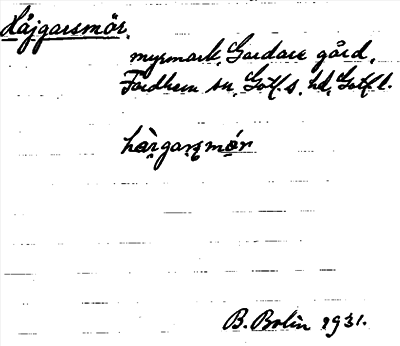 Hàjgarsmör.
myrmark, Gardare gård,
Fardhem sn, Gotl. s. hd, Gotl. l.
hàrgarsmór
B. Bolin 1931.